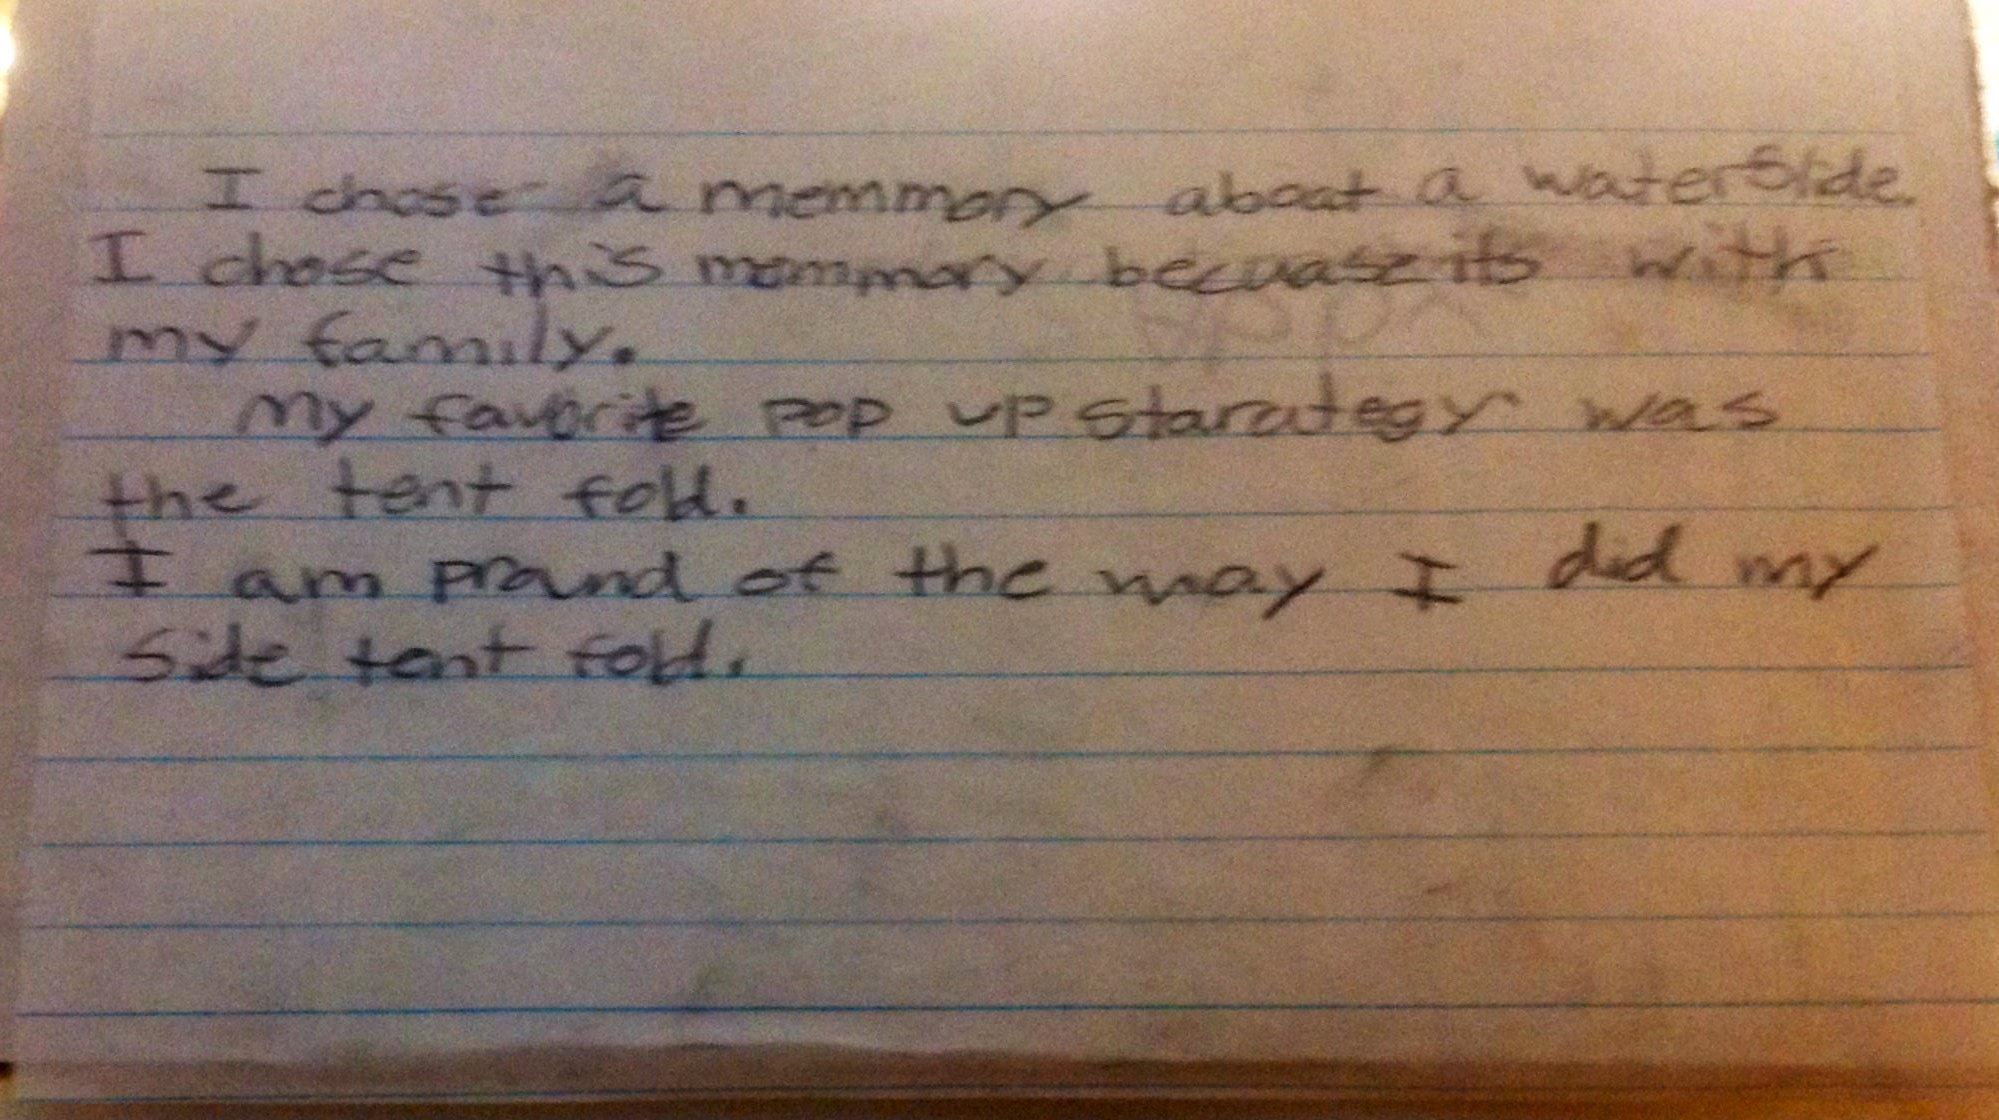 I chose a memmory about a waterslide.
I chose this memmory becuase its with
my family.
My favorite pop up starategy was
the tent fold.
I am prand of the way I did my
side tent fold.